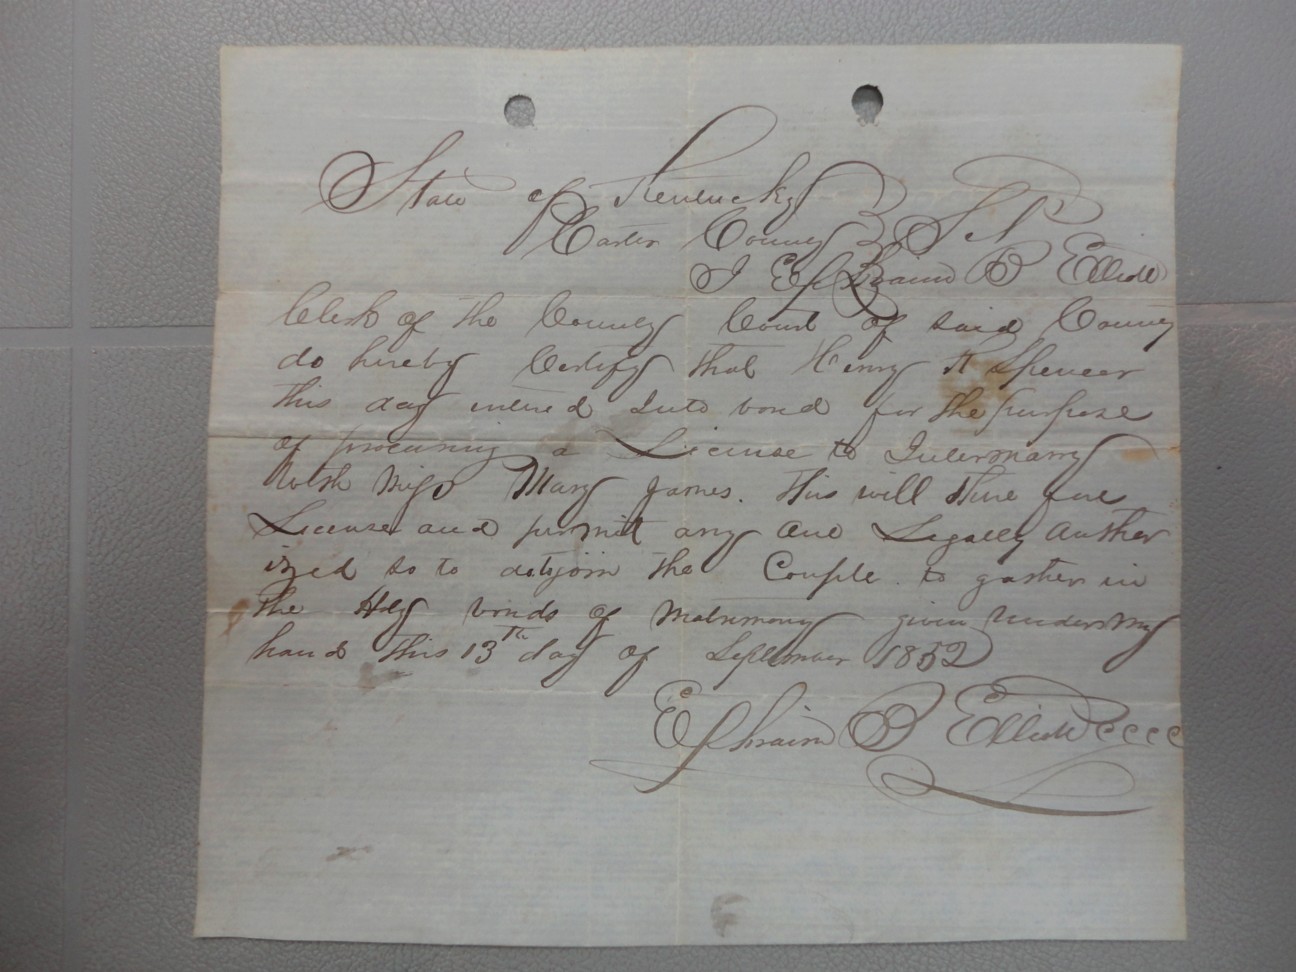 State of Kentucky
Carter County } Sct
I Ephraim B Elliott
Clerk of the County Court of said County
do hereby Certify that Henry H Spencer
this day entered Into bond for the purpose
of procuring a License to Intermarry
With Miss Mary James. This will there fore
License and permit any one Legally author
ized so to do to join the Couple to gather in
the Holy bonds of Matrimony given under my
hand this 13th day of September 1852
Ephraim B Elliott cccc